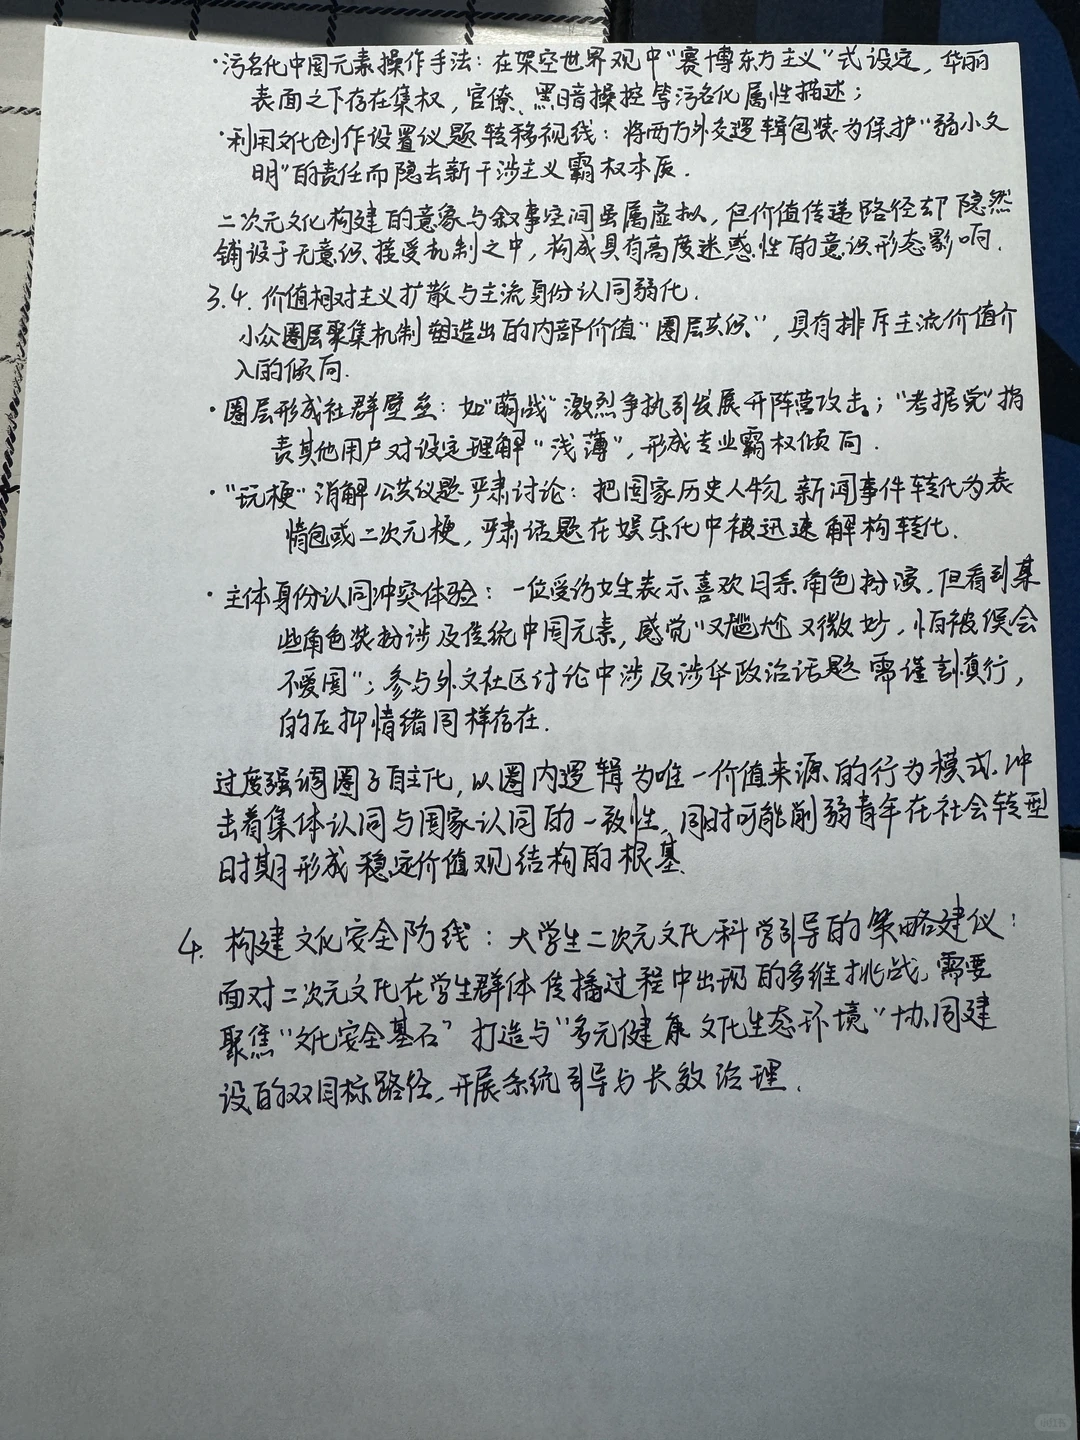 ·污名化中国元素操作手法：在架空世界观中"赛博东方主义"式设定，华丽
表面之下存在集权，官僚、黑暗操控等污名化属性描述；
·利用文化创作设置议题转移视线：将西方外交逻辑包装为保护"弱小文
明"的责任而隐去新干涉主义霸权本质.
二次元文化构建的意象与叙事空间虽属虚拟，但价值传递路径却隐然
铺设于无意识接受机制之中，构成具有高度迷惑性的意识形态影响.
3.4.价值相对主义扩散与主流身份认同弱化.
小众圈层聚集机制塑造出的内部价值"圈层共识"，具有排斥主流价值介
入的倾向.
·圈层形成社群壁垒：如"萌战"激烈争执引发展开阵营攻击；"考据党"指
责其他用户对设定理解"浅薄"，形成专业霸权倾向.
·"玩梗"消解公共议题严肃讨论：把国家历史人物、新闻事件转化为表
情包或二次元梗，严肃话题在娱乐化中被迅速解构转化.
·主体身份认同冲突体验：一位受访女生表示喜欢日系角色扮演，但看到某
些角色装扮涉及传统中国元素，感觉"又尴尬又微妙，怕被误会
不爱国"；参与外文社区讨论中涉及涉华政治话题需谨言慎行，
的压抑情绪同样存在.
过度强调圈子自主化，以圈内逻辑为唯一价值来源的行为模式，冲
击着集体认同与国家认同的一致性，同时可能削弱青年在社会转型
时期形成稳定价值观结构的根基.
4.构建文化安全防线：大学生二次元文化科学引导的策略建议：
面对二次元文化在学生群体传播过程中出现的多维挑战，需要
聚焦"文化安全基石"打造与"多元健康文化生态环境"协同建
设的双目标路径，开展系统引导与长效治理.
小红书